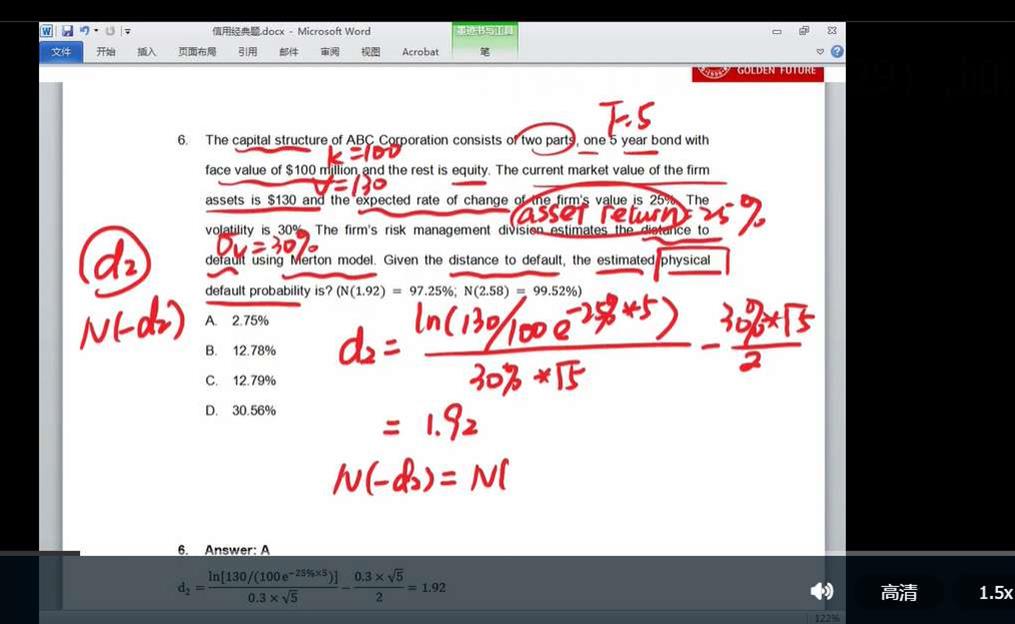 信用经典题.docx - Microsoft Word
墨迹书写工具
文件 开始 插入 页面布局 引用 邮件 审阅 视图 Acrobat 笔
GOLDEN FUTURE
T=5
6. The capital structure of ABC Corporation consists of two parts, one 5 year bond with
K=100
face value of $100 million and the rest is equity. The current market value of the firm
V=130
assets is $130 and the expected rate of change of the firm's value is 25%. The
asset return = 25%
volatility is 30%. The firm's risk management division estimates the distance to
σv=30%
default using Merton model. Given the distance to default, the estimated physical
default probability is? (N(1.92) = 97.25%; N(2.58) = 99.52%)
d₂
N(-d₂)
A. 2.75%
B. 12.78%
C. 12.79%
D. 30.56%
d₂ = ln(130/100e^-25%*5) / 30%*√5 - 30%*√5 / 2
= 1.92
N(-d₂) = N(
6. Answer: A
d₂ = ln[130/(100e^−25%×5)] / 0.3 × √5 − 0.3 × √5 / 2 = 1.92
高清 1.5x
122%